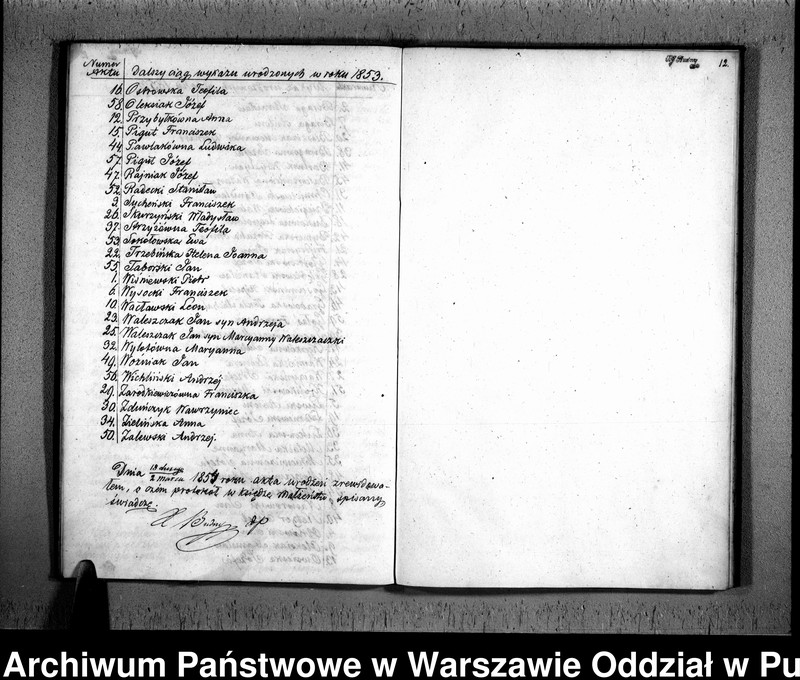 Numer Aktu
Dalszy ciąg wykazu urodzonych w roku 1853.
16. Ostrowska Teofila
58. Oleksiak Józef
12. Przybyłkówna Anna
15. Pigut Franciszek
44. Pawlakówna Ludwika
57. Pigut Józef
47. Rajniak Józef
52. Radecki Stanisław
3. Sycheński Franciszek
26. Skurzyński Władysław
37. Strzyżówna Teofila
53. Sokołowska Ewa
22. Trzebińska Helena Joanna
55. Taborski Jan
1. Wiśniewski Piotr
6. Wysocki Franciszek
10. Wacławski Leon
23. Waleszczak Jan syn Andrzeja
25. Waleszczak Jan syn Maryanny Waleszczaczki
32. Wylotówna Maryanna
49. Woźniak Jan
56. Wichliński Andrzej
29. Zarodkiewiczówna Franciszka
30. Zduńczyk Wawrzyniec
34. Zielińska Anna
50. Zalewski Andrzej.
Dnia 18 lutego / 2 marca 1854 roku akta urodzeń zrewidowa-
łem, o czém protokół w księdze małżeństw, spisany
świadczy.
X Budny
12.
Archiwum Państwowe w Warszawie Oddział w Pu